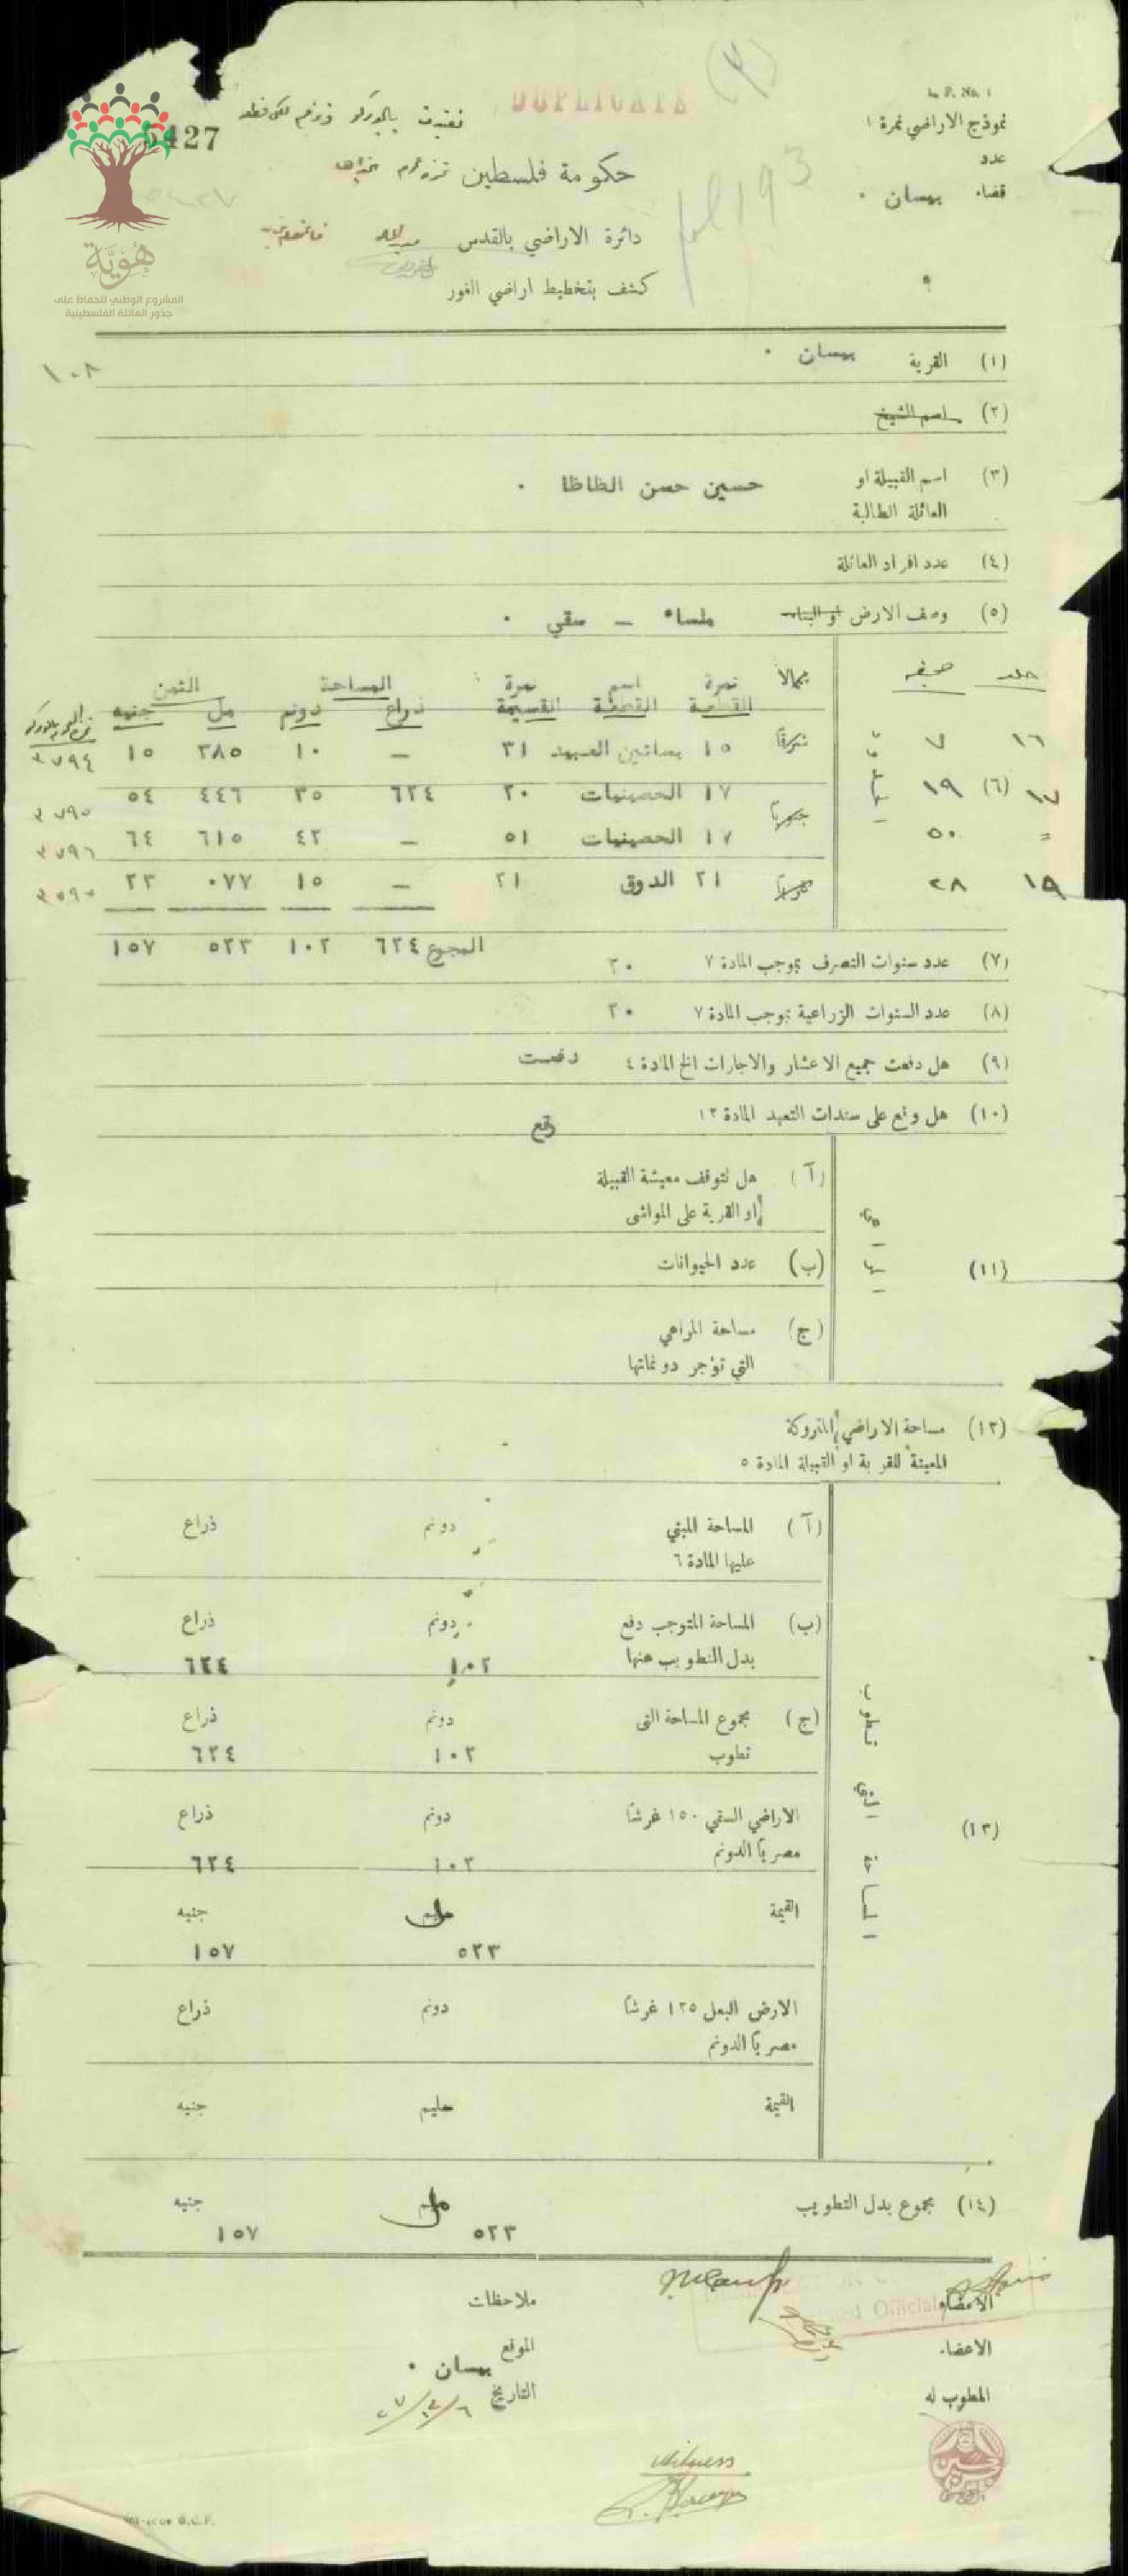 DUPLICATE
(٢)
L. P. No. 1
نموذج الاراضي نمرة ١
5427
عدد
حكومة فلسطين
fol 193
قضاء بيسان ٠
دائرة الاراضي بالقدس
كشف بتخطيط اراضي الغور
هُويَّة
المشروع الوطني للحفاظ على
جذور العائلة الفلسطينية
١٠٨
(١) القرية بيسان ٠
(٢) اسم الشيخ
(٣) اسم القبيلة او حسين حسن الظاظا ٠
العائلة الطالبة
(٤) عدد افراد العائلة
(٥) وصف الارض او البناء ملساء – سقي ٠
جلد صحيفه نمرة القطعة اسم القطعة نمرة القسيمة المساحة الثمن
دونم ذراع جنيه مل
١٦ ٧ ١٥ بساتين العبيد ٣١ – ١٠ ٣٨٥ ١٥ ٣٧٩٤
(٦) ١٧ ١٩ ١٧ الحصينيات ٢٠ ٦٢٤ ٣٥ ٤٤٦ ٥٤ ٣٧٩٥
= ٥٠ ١٧ الحصينيات ٥١ – ٤٢ ٦١٥ ٦٤ ٣٧٩٦
١٩ ٢٨ ٢١ الدوق ٢١ – ١٥ ٠٧٧ ٢٣
المجموع ٦٢٤ ١٠٢ ٥٢٣ ١٥٧
(٧) عدد سنوات التصرف بموجب المادة ٧ ٢٠
(٨) عدد السنوات الزراعية بموجب المادة ٧ ٢٠
(٩) هل دفعت جميع الاعشار والاجارات الخ المادة ٤ دفعت
(١٠) هل وقع على سندات التعهد المادة ١٣ وقع
(آ) هل تتوقف معيشة القبيلة
او القرية على المواشي
(١١) (ب) عدد الحيوانات
(ج) مساحة المراعي
التي تؤجر دونماتها
(١٢) مساحة الاراضي المتروكة
المعينة للقرية او القبيلة المادة ٥
(آ) المساحة المبني دونم ذراع
عليها المادة ٦
(ب) المساحة المتوجب دفع دونم ذراع
بدل التطويب عنها ١٠٢ ٦٢٤
(ج) مجموع المساحة التى دونم ذراع
تطوب ١٠٢ ٦٢٤
(١٣) المساحة التي تطوب
الاراضي السقي ١٥٠ غرشا دونم ذراع
مصريا الدونم ١٠٢ ٦٢٤
القيمة مل جنيه
٥٢٣ ١٥٧
الارض البعل ١٢٥ غرشا دونم ذراع
مصريا الدونم
القيمة مليم جنيه
(١٤) مجموع بدل التطويب مل جنيه
٥٢٣ ١٥٧
الامضاء ملاحظات
Official
الاعضاء الموقع بيسان ٠
المطوب له التاريخ ٦/١٢/٢٧
Witness
G.C.P.